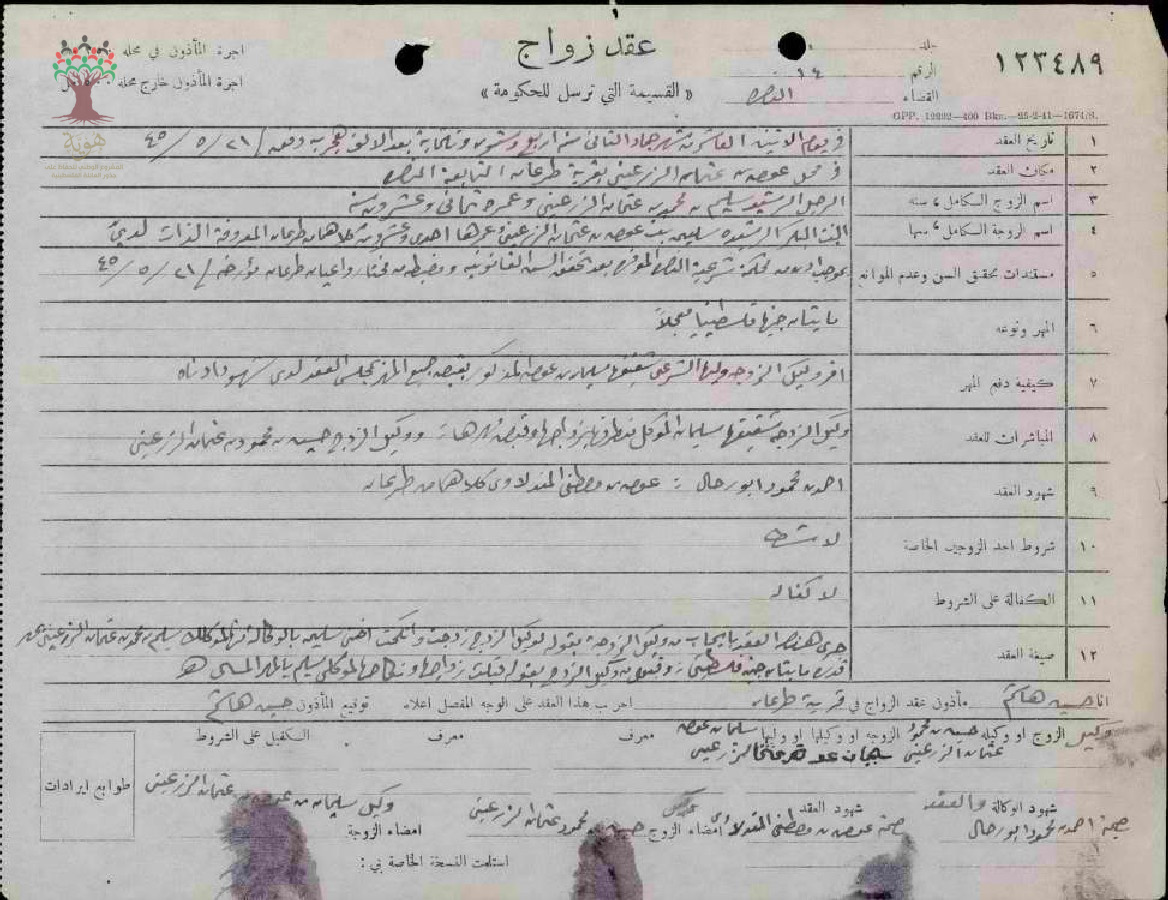 عقد زواج
« القسيمة التي ترسل للحكومة »
١٢٣٤٨٩
جلد
الرقم ١٤
القضاء
اجرة المأذون في محله
اجرة المأذون خارج محله
هوية
GPP. 12292—400 Bks.—25-2-41—1674/S.
١ تاريخ العقد في يوم الاثنين العاشر من شهر جماد الثاني سنة اربع وستين وثلاثماية بعد الالف هجرية وفق ٢١ / ٥ / ٤٥
٢ مكان العقد في محل عوض بن عثمان الزرعيني بقرية طرعان التابعة
٣ اسم الزوج الكامل و سنه الرجل الرشيد سليم بن محمود بن عثمان الزرعيني وعمره ثماني وعشرون سنة
٤ اسم الزوجة الكامل و سنها البنت البكر الرشيده سليمه بنت عوض بن عثمان الزرعيني وعمرها احدى وعشرون كلاهما من طرعان المعروفة الذات لدي
٥ مستندات تحقيق السن وعدم الموانع بموجب اذن من محكمة شرعية بعد تحقق السن القانونية ومضبطة من مختار واعيان طرعان مؤرخة ٢١ / ٥ / ٤٥
٦ المهر ونوعه مايتان جنيها فلسطينيا معجلاً
٧ كيفية دفع المهر اقر وكيل الزوجه وليها الشرعي شقيقها سليمان بن عوض المذكور بقبض جميع المهر بمجلس العقد لدى شهود ادناه
٨ المباشران للعقد وكيل الزوجة شقيقها سليمان الموكل من طرفها بزواجها وقبض مهرها : ووكيل الزوج حسين بن محمود بن عثمان الزرعيني
٩ شهود العقد احمد محمود ابو رحال : عوض بن مصطفى كلاهما من طرعان
١٠ شروط احد الزوجين الخاصة لا شرط
١١ الكفالة على الشروط لا كفاله
١٢ صيغة العقد جرى هذا العقد بايجاب من وكيل الزوجة بقوله لوكيل الزوج زوجت وانكحت اختي سليمه بالوكالة عنها لموكلك سليم بن محمود بن عثمان الزرعيني بمهر
قدره مايتان جنيه فلسطيني : وقبول من وكيل الزوج بقوله قبلت زواجها ونكاحها لموكلي سليم بالمهر المسمى
انا حسين هاشم مأذون عقد الزواج في قرية طرعان اجريت هذا العقد على الوجه المفصل اعلاه توقيع المأذون حسين هاشم
وكيل الزوج او وكيله حسين بن محمود الزوجه او وكيلها او وليها سليمان عوض معرف معرف الكفيل على الشروط
عثمان الزرعيني الزرعيني
طوابع ايرادات
شهود الوكالة والعقد شهود العقد وكيل وكيل سليمان بن عوض عثمان الزرعيني
احمد محمود ابو رحال عوض بن مصطفى امضاء الزوج حسين محمود عثمان الزرعيني امضاء الزوجة
استلمت النسخة الخاصة بي :